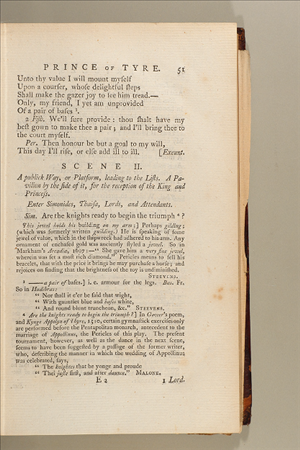 PRINCE OF TYRE. 51
Unto thy value I will mount myself
Upon a courser, whose delightful steps
Shall make the gazer joy to see him tread.—
Only, my friend, I yet am unprovided
Of a pair of bases.
2 Fish. We'll sure provide: thou shalt have my
best gown to make thee a pair; and I'll bring thee to
the court myself.
Per. Then honour be but a goal to my will,
This day I'll rise, or else add ill to ill. [Exeunt.
SCENE II.
A publick Way, or Platform, leading to the Lists. A Pa-
vilion by the side of it, for the reception of the King and
Princess.
Enter Simonides, Thaisa, Lords, and Attendants.
Sim. Are the knights ready to begin the triumph?
This jewel holds his building on my arm;] Perhaps gilding;
(which was formerly written guilding.) He is speaking of some
jewel of value, which in the shipwreck had adhered to his arm. Any
ornament of enchased gold was anciently styled a jewel. So in
Markham's Arcadia, 1607:—" She gave him a very fine jewel,
wherein was set a most rich diamond." Pericles means to sell his
bracelet, that with the price it brings he may purchase a horse; and
rejoices on finding that the brightness of the toy is undiminished.
STEEVENS.
—a pair of bases.] i. e. armour for the legs.
So in Hudibras:
" Nor shall it e'er be said that wight,
" With gauntlet blue and bases white,
" And round blunt truncheon, &c." STEEVENS.
Are the knights ready to begin the triumph?] In Gower's poem,
and Kynge Appolyn of Thyre, 1510, certain gymnastick exercises only
are performed before the Pentapolitan monarch, antecedent to the
marriage of Appollinus, the Pericles of this play. The present
tournament, however, as well as the dance in the next scene,
seems to have been suggested by a passage of the former writer,
who, describing the manner in which the wedding of Appollinus
was celebrated, says,
" The knights that be yonge and proude
" Thei juste first, and after daunce." MALONE.
E 2 1 Lord.